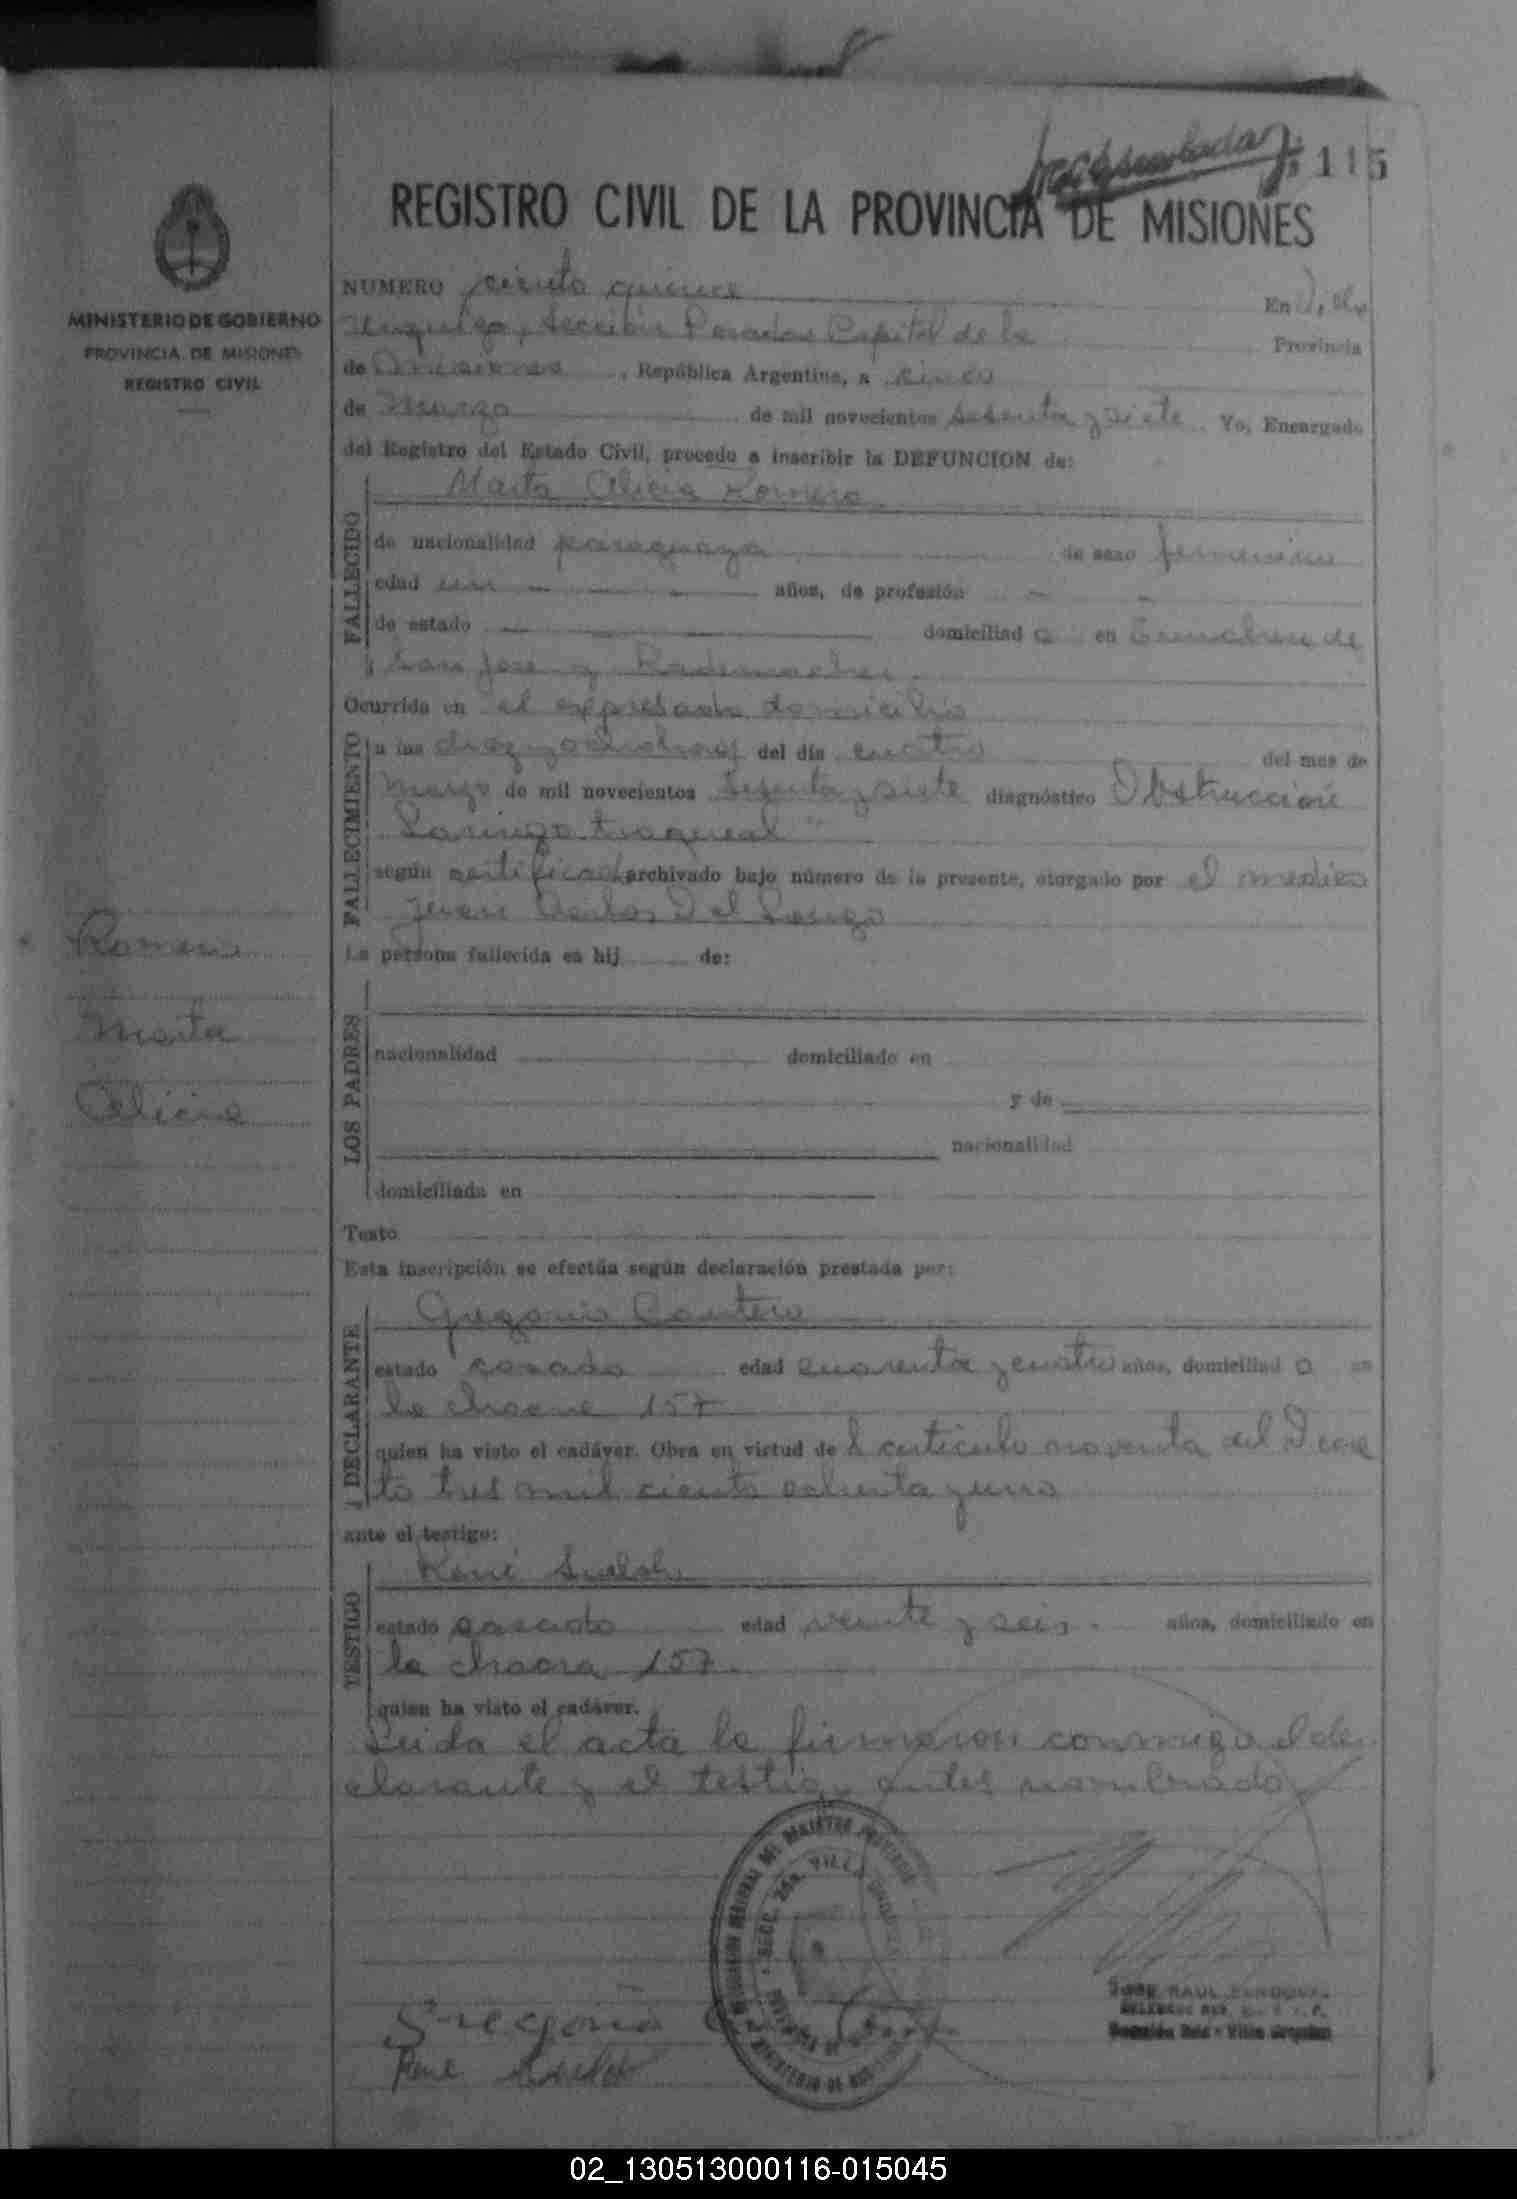 115
REGISTRO CIVIL DE LA PROVINCIA DE MISIONES
MINISTERIO DE GOBIERNO
PROVINCIA DE MISIONES
REGISTRO CIVIL
NUMERO ciento quince En Villa
Urquiza, Sección Posadas Capital de la Provincia
de Misiones, República Argentina, a cinco
de Marzo de mil novecientos sesenta y siete. Yo, Encargado
del Registro del Estado Civil, procedo a inscribir la DEFUNCION de:
FALLECIDO
Marta Alicia Romero
de nacionalidad paraguaya de sexo femenino
edad un años, de profesión
de estado domiciliad a en Trincheras de
San José y Rademacher.
Ocurrida en el expresado domicilio
FALLECIMIENTO
a las diez y ocho horas del día cuatro del mes de
marzo de mil novecientos sesenta y siete diagnóstico Obstrucción
Laringo traqueal"
según certificado archivado bajo número de la presente, otorgado por el medico
Juan Carlos Del
La persona fallecida es hij de:
Romero
Marta
Alicia
LOS PADRES
nacionalidad domiciliado en
y de
nacionalidad
domiciliada en
Texto
Esta inscripción se efectúa según declaración prestada por:
DECLARANTE
Gregorio Cantero
estado casado edad cuarenta y cuatro años, domiciliad o en
la chacra 157
quien ha visto el cadáver. Obra en virtud de l articulo noventa del Decre
to tres mil ciento ochenta y uno
ante el testigo:
TESTIGO
René
estado casado edad veinte y seis. años, domiciliado en
la chacra 157.
quien ha visto el cadáver.
Leida el acta la firmaron conmigo el de
clarante y el testigo antes nombrado
Gregorio
René
JOSE RAUL
Sección 2da - Villa Urquiza
02_130513000116-015045